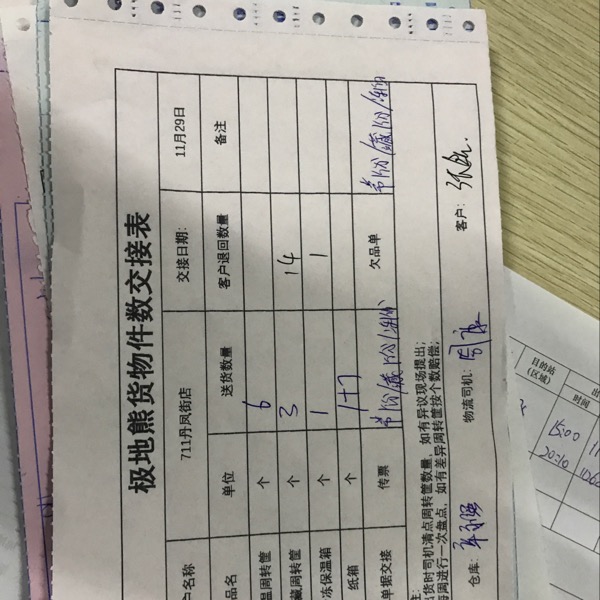 极地熊货物件数交接表
户名称 711丹凤街店 交接日期: 11月29日
品名 单位 送货数量 客户退回数量 备注
温周转筐 个 6
藏周转筐 个 3 14
冻保温箱 个 1 1
纸箱 个 1+7
单据交接 传票 欠品单
注:
出货时司机清点周转筐数量,如有异议现场提出;
每周进行一次盘点,如有差异周转筐按个数赔偿;
仓库: 物流司机: 客户:
目的站
(区域)
出
时间
15:00
20:10